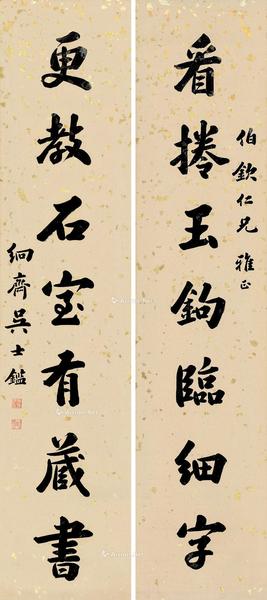 伯欽仁兄雅正
看捲玉鉤臨細字
更教石室有藏書
絅齋吳士鑑